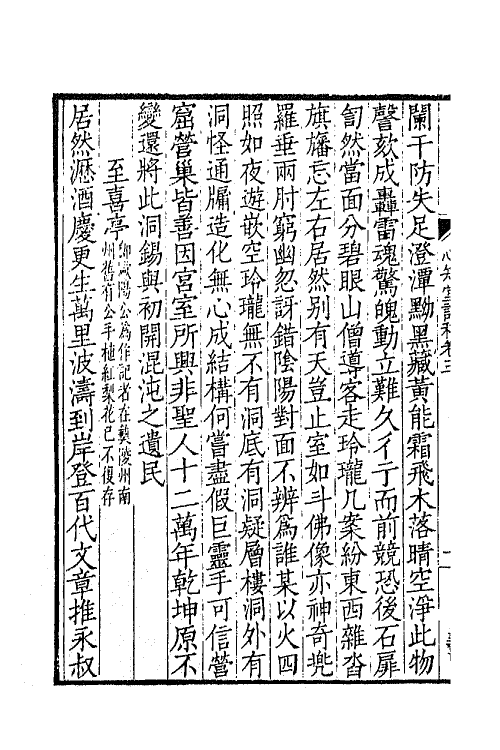 闌干防失足澄潭黝黑藏黃能霜飛木落晴空淨此物
謦欬成轟雷魂驚魄動立難久彳亍而前競恐後石扉
訇然當面分碧眼山僧導客走玲瓏几案紛東西雜沓
旗旛忘左右居然别有天豈止室如斗佛像亦神奇兠
羅垂兩肘窮幽忽訝錯陰陽對面不辨爲誰某以火四
照如夜遊嵌空玲瓏無不有洞底有洞疑層樓洞外有
洞怪通牖造化無心成結構何嘗盡假巨靈手可信營
窟營巢皆善因宮室所興非聖人十二萬年乾坤原不
變還將此洞錫與初開混沌之遺民
至喜亭卽歐陽公爲作記者在夷陵州南
州舊有公手植紅梨花已不復存
居然瀝酒慶更生萬里波濤到岸登百代文章推永叔